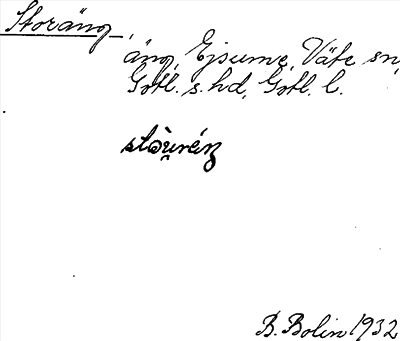 Storäng,
äng, Ejsume, Väte sn,
Gotl. s. hd, Gotl. l.
stòu̯réŋ
B. Bolin 1932